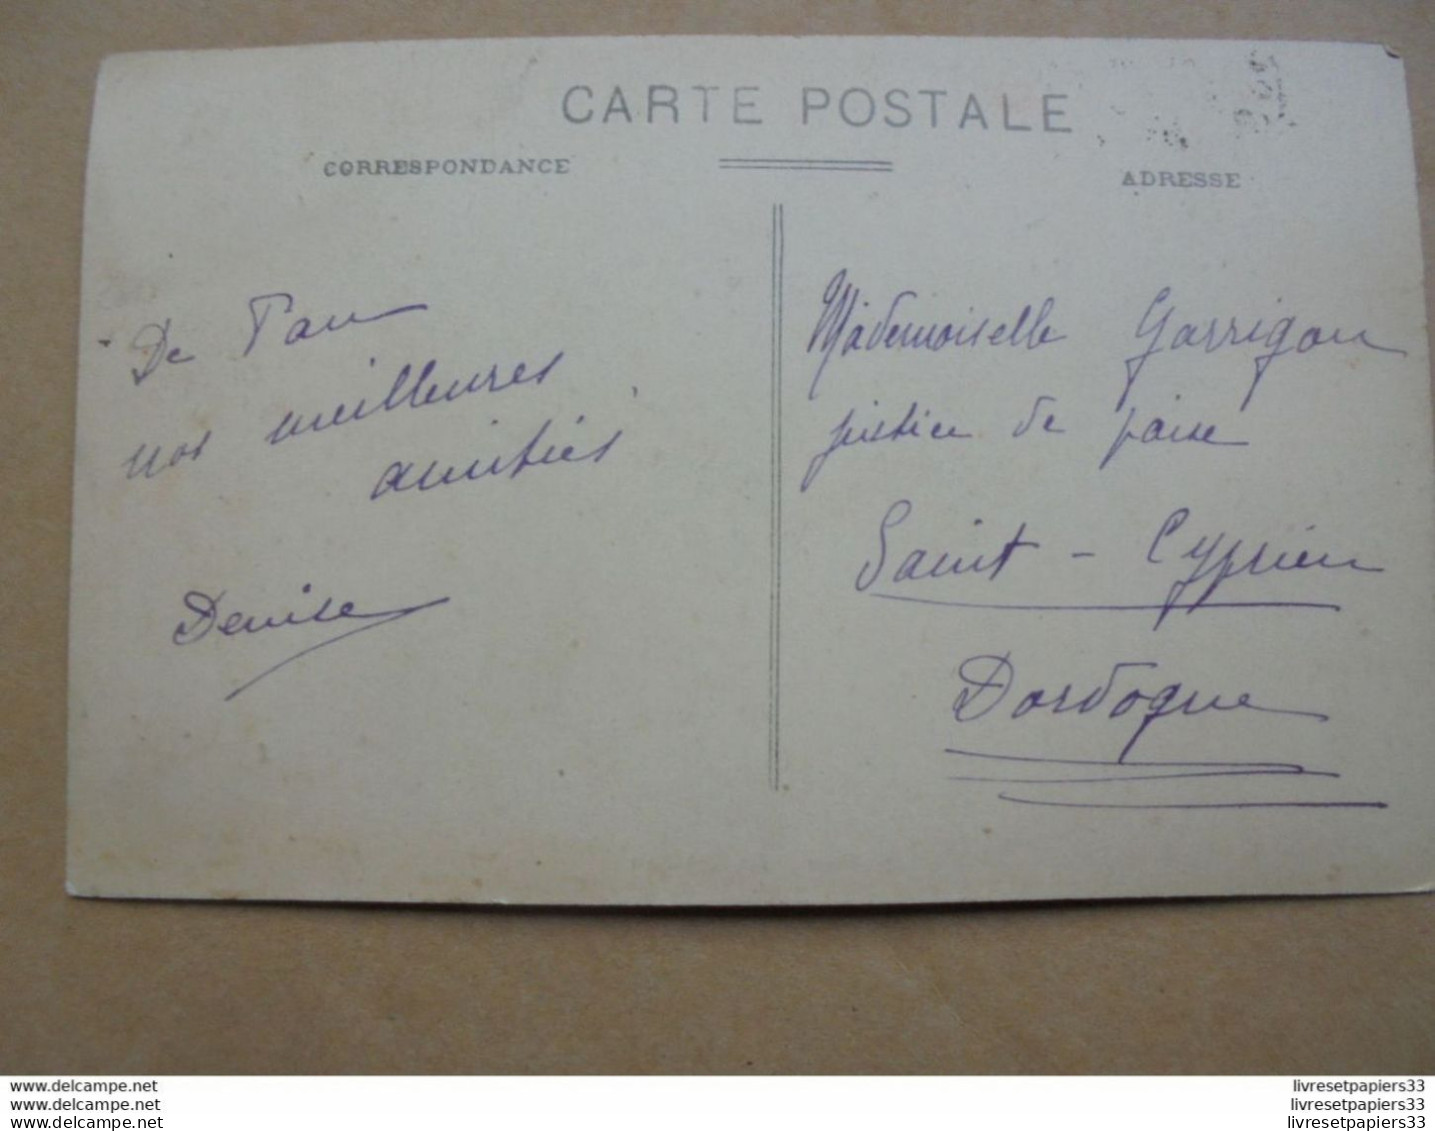 CARTE POSTALE
CORRESPONDANCE
ADRESSE
De Pau
nos meilleures
amitiés
Denise
Mademoiselle Garrigou
justice de paix
Saint-Cyprien
Dordogne
www.delcampe.net
www.delcampe.net
www.delcampe.net
livresetpapiers33
livresetpapiers33
livresetpapiers33